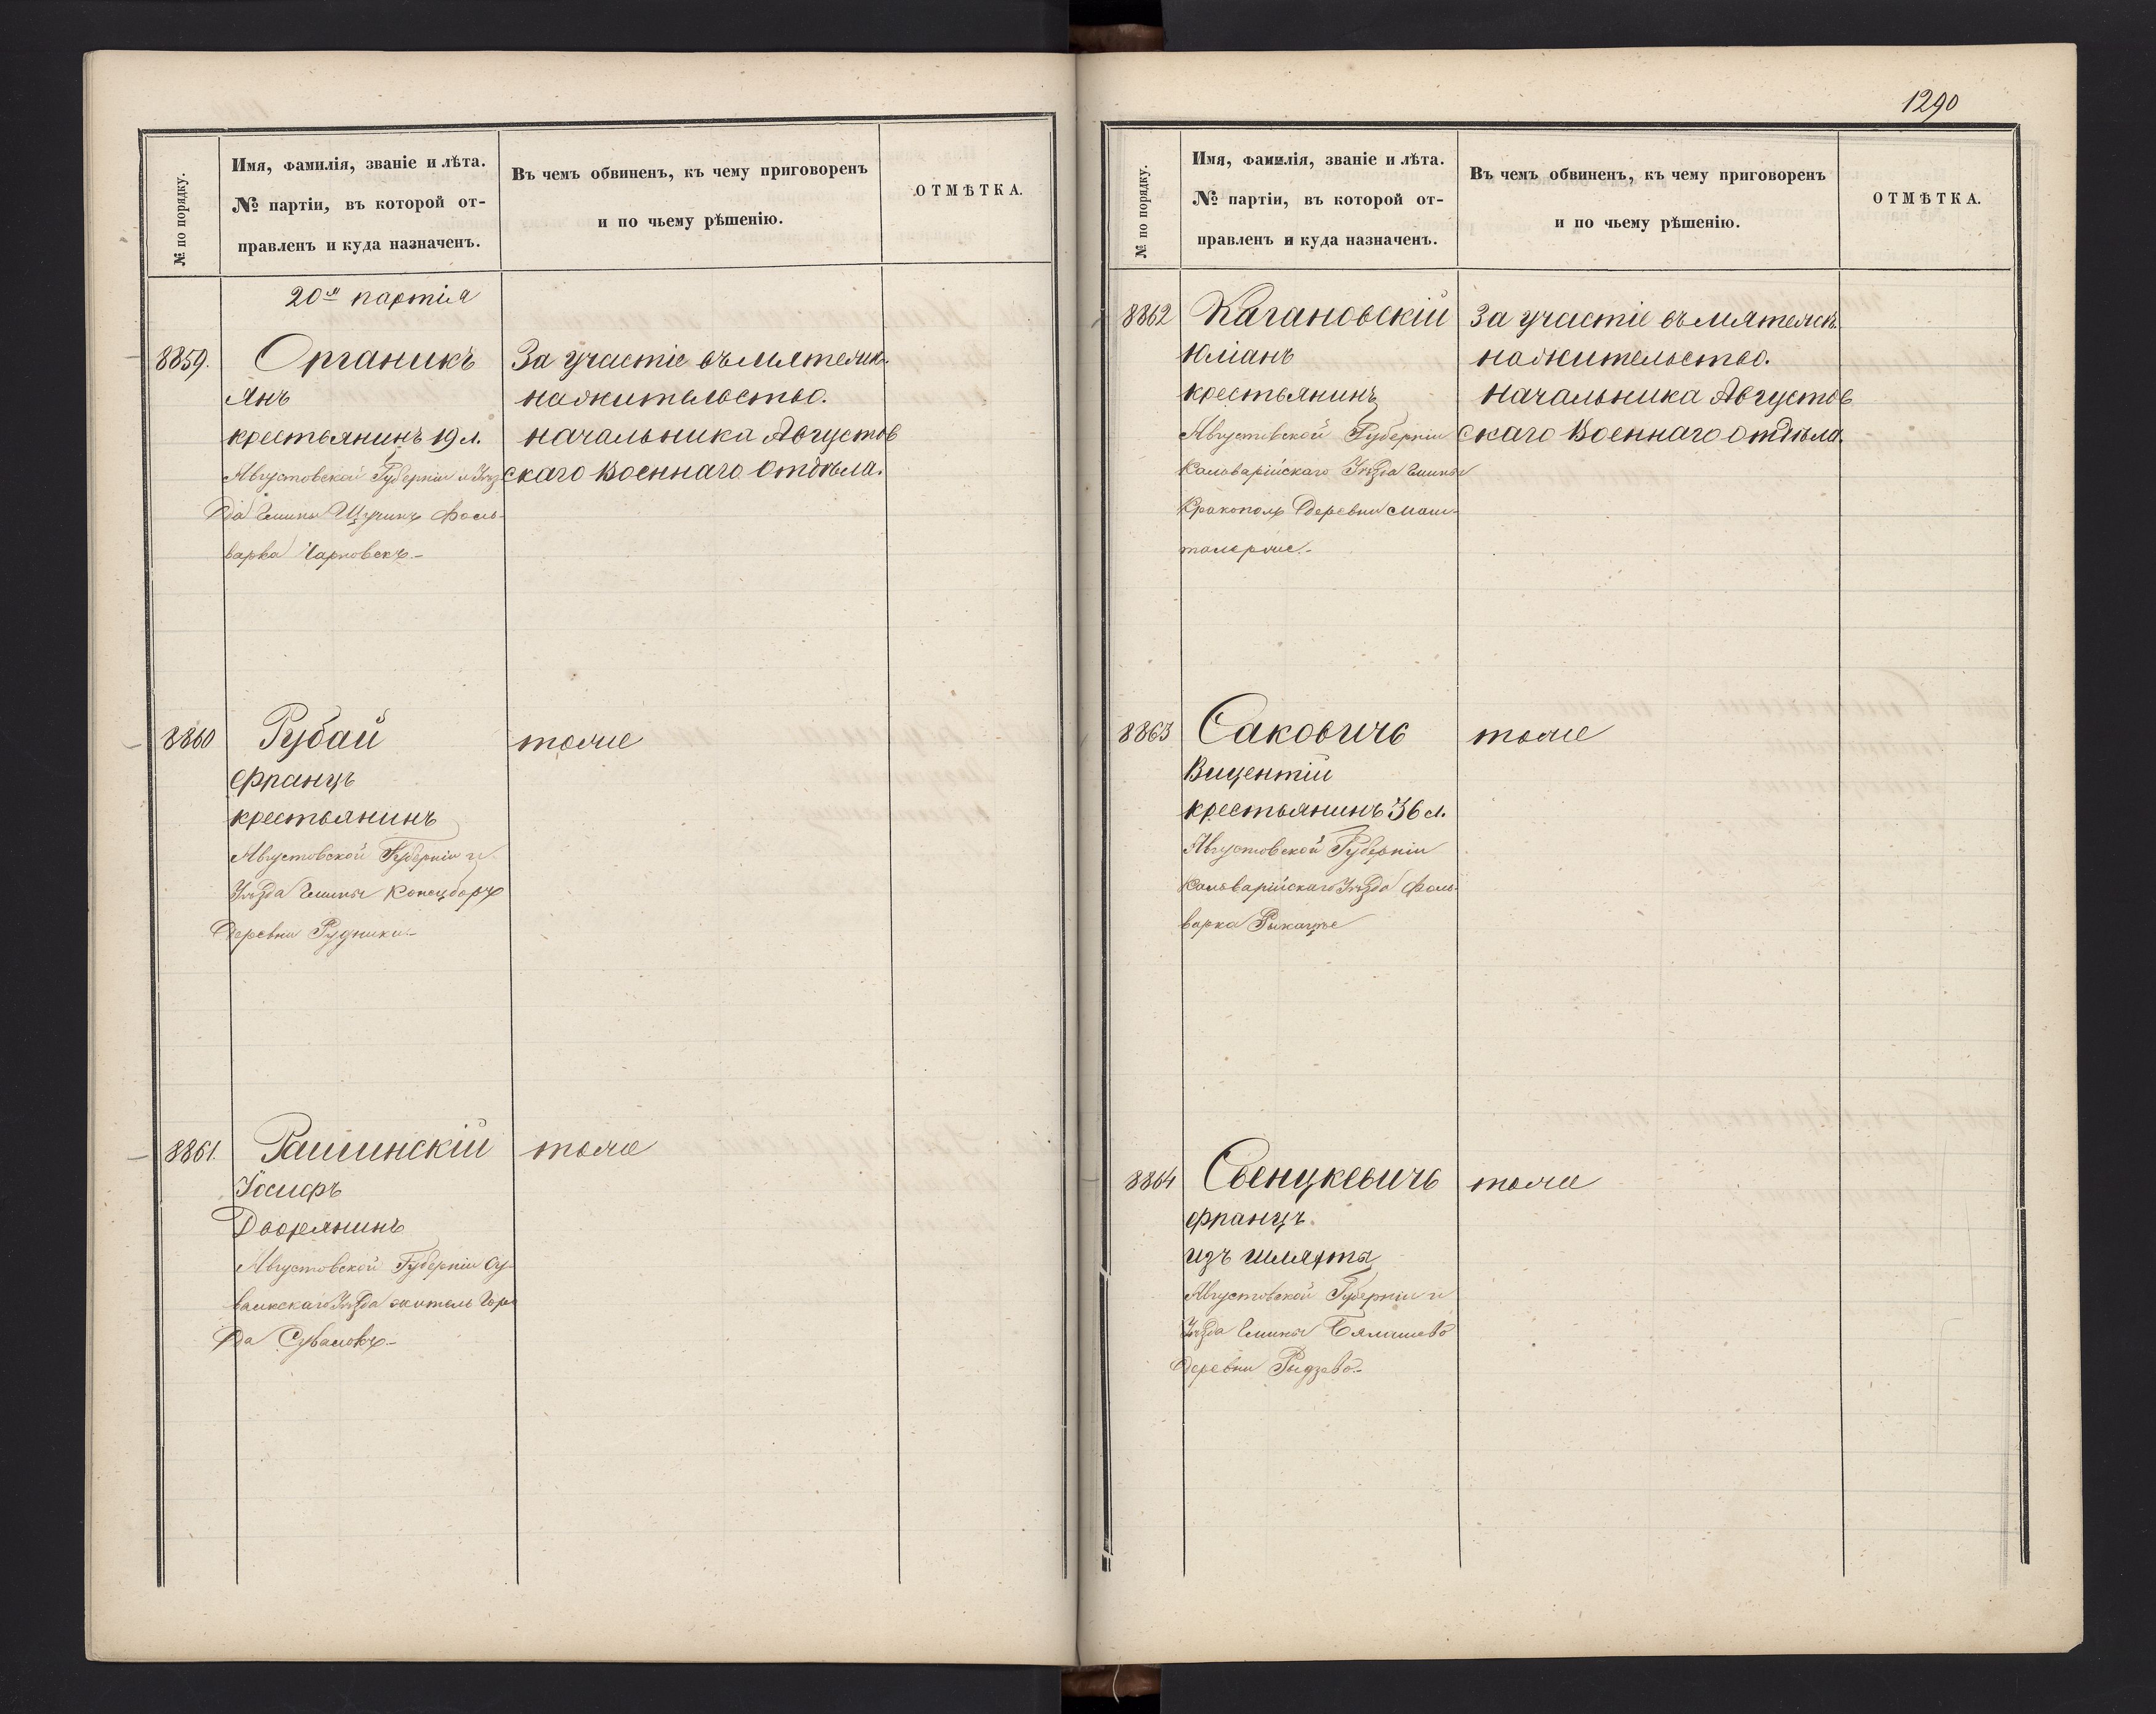 № по порядку.
Имя, фамилія, званіе и лѣта.
№ партіи, въ которой от-
правленъ и куда назначенъ.
Въ чемъ обвиненъ, къ чему приговоренъ
и по чьему рѣшенію.
ОТМѢТКА.
20я партія
8859.
Органикъ
Янъ
крестьянинъ 19 л.
Августовской Губерніи и Уѣз-
да Гмины Щучинъ Фоль-
варка Чарновекъ
За участіе въ мятежн.
на жительство.
Начальника Августов
скаго Военнаго Отдѣла.
8860
Рубай
Францъ
крестьянинъ
Августовской Губерніи и
Уѣзда Гмины Конецборъ
Деревни Рудники
тоже
8861.
Рашинскій
Іосифъ
Дворянинъ
Августовской Губерніи Су-
валкскаго Уѣзда житель Горо
да Сувалокъ
тоже
1290
№ по порядку.
Имя, фамилія, званіе и лѣта.
№ партіи, въ которой от-
правленъ и куда назначенъ.
Въ чемъ обвиненъ, къ чему приговоренъ
и по чьему рѣшенію.
ОТМѢТКА.
8862
Кагановскій
Юліанъ
крестьянинъ
Августовской Губерніи
Кальварійскаго Уѣзда Гмины
Кракополь Деревни
За участіе въ мятежн.
на жительство.
Начальника Августов
скаго Военнаго Отдѣла.
8863
Саковичъ
Вицентій
крестьянинъ 36 л.
Августовской Губерніи
Кальварійскаго Уѣзда Фоль-
варка
тоже
8864
Свенцкевичъ
Францъ
изъ шляхты
Августовской Губерніи и
Уѣзда Гмины Бялашево
Деревни Рыдзево
тоже